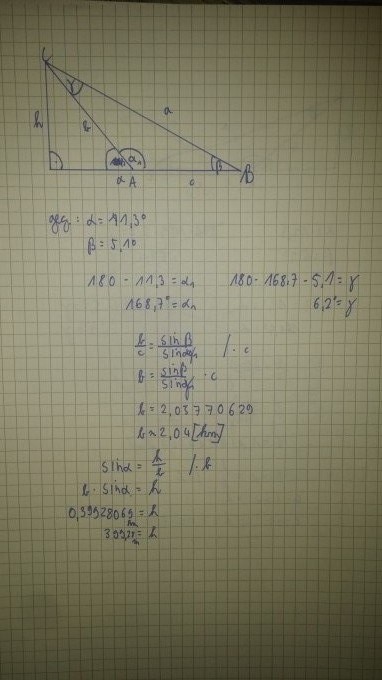 C
γ
h
b
a
α₁
β
α
A
c
B
geg: α = 11,3°
β = 5,1°
180 - 11,3 = α₁
168,7° = α₁
180 - 168,7 - 5,1 = γ
6,2° = γ
b/c = sinβ/sinγ / · c
b = sinβ/sinγ · c
b = 2,03770629
b ≈ 2,04 [km]
sinα = h/b / · b
b · sinα = h
0,39928069 km = h
m = h